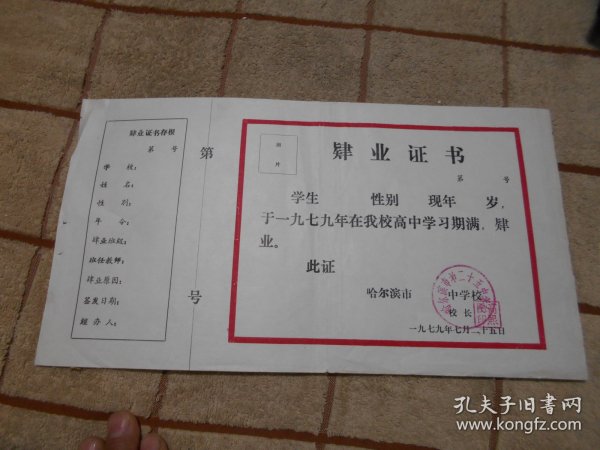 肄业证书存根
第 号
学 校:
姓 名:
性 别:
年 令:
肄业班级:
班任教师:
肄业原因:
签发日期:
经办人:
第
号
照
片
肄业证书
第 号
学生 性别 现年 岁,
于一九七九年在我校高中学习期满,肄
业。
此证
哈尔滨市 中学校
校长
一九七九年七月二十五日
哈尔滨市第二十五中学校
孔夫子旧书网
www.kongfz.com